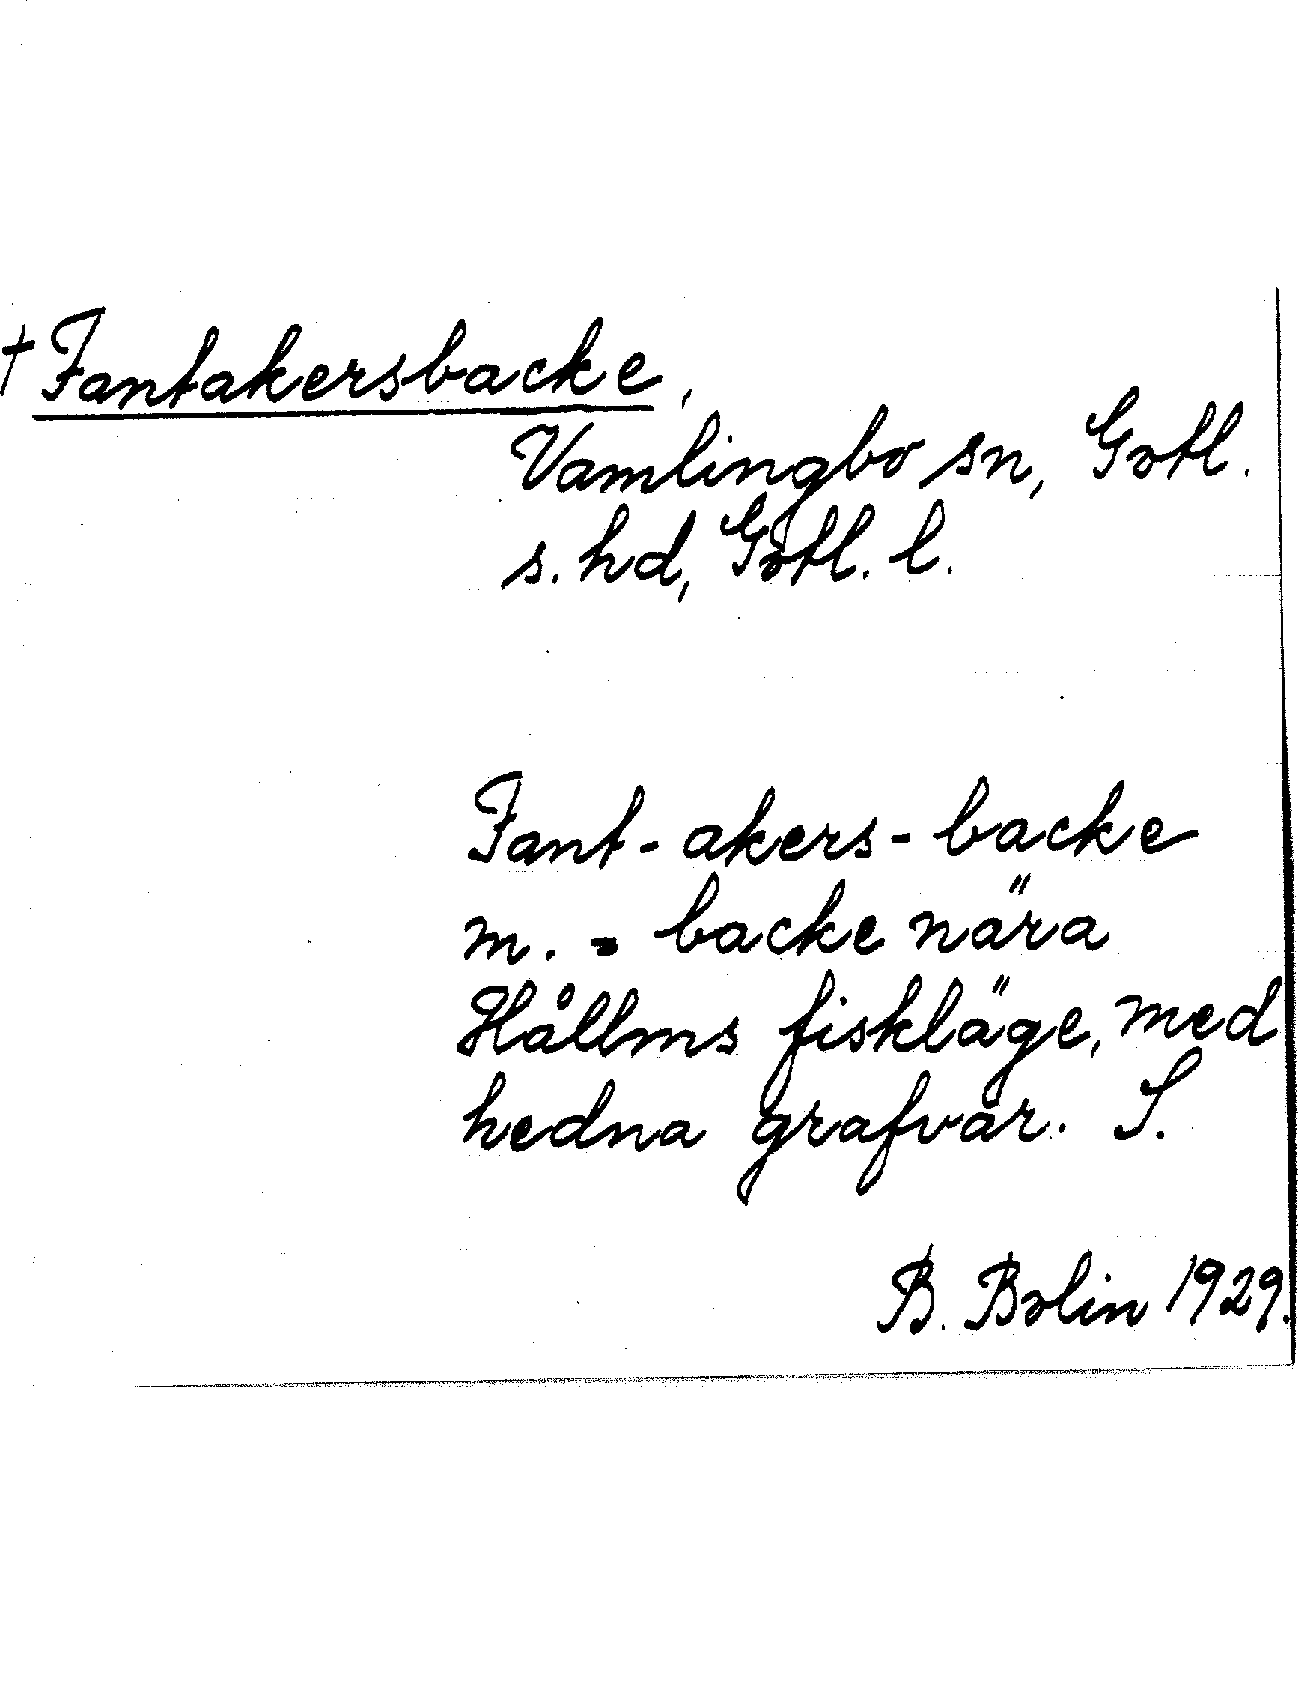 † Fantakersbacke,
Vamlingbo sn, Gotl.
s. hd, Gotl. l.
Fant-akers-backe
m. = backe nära
Hållms fiskläge, med
hedna grafvar. S.
B. Bolin 1929.